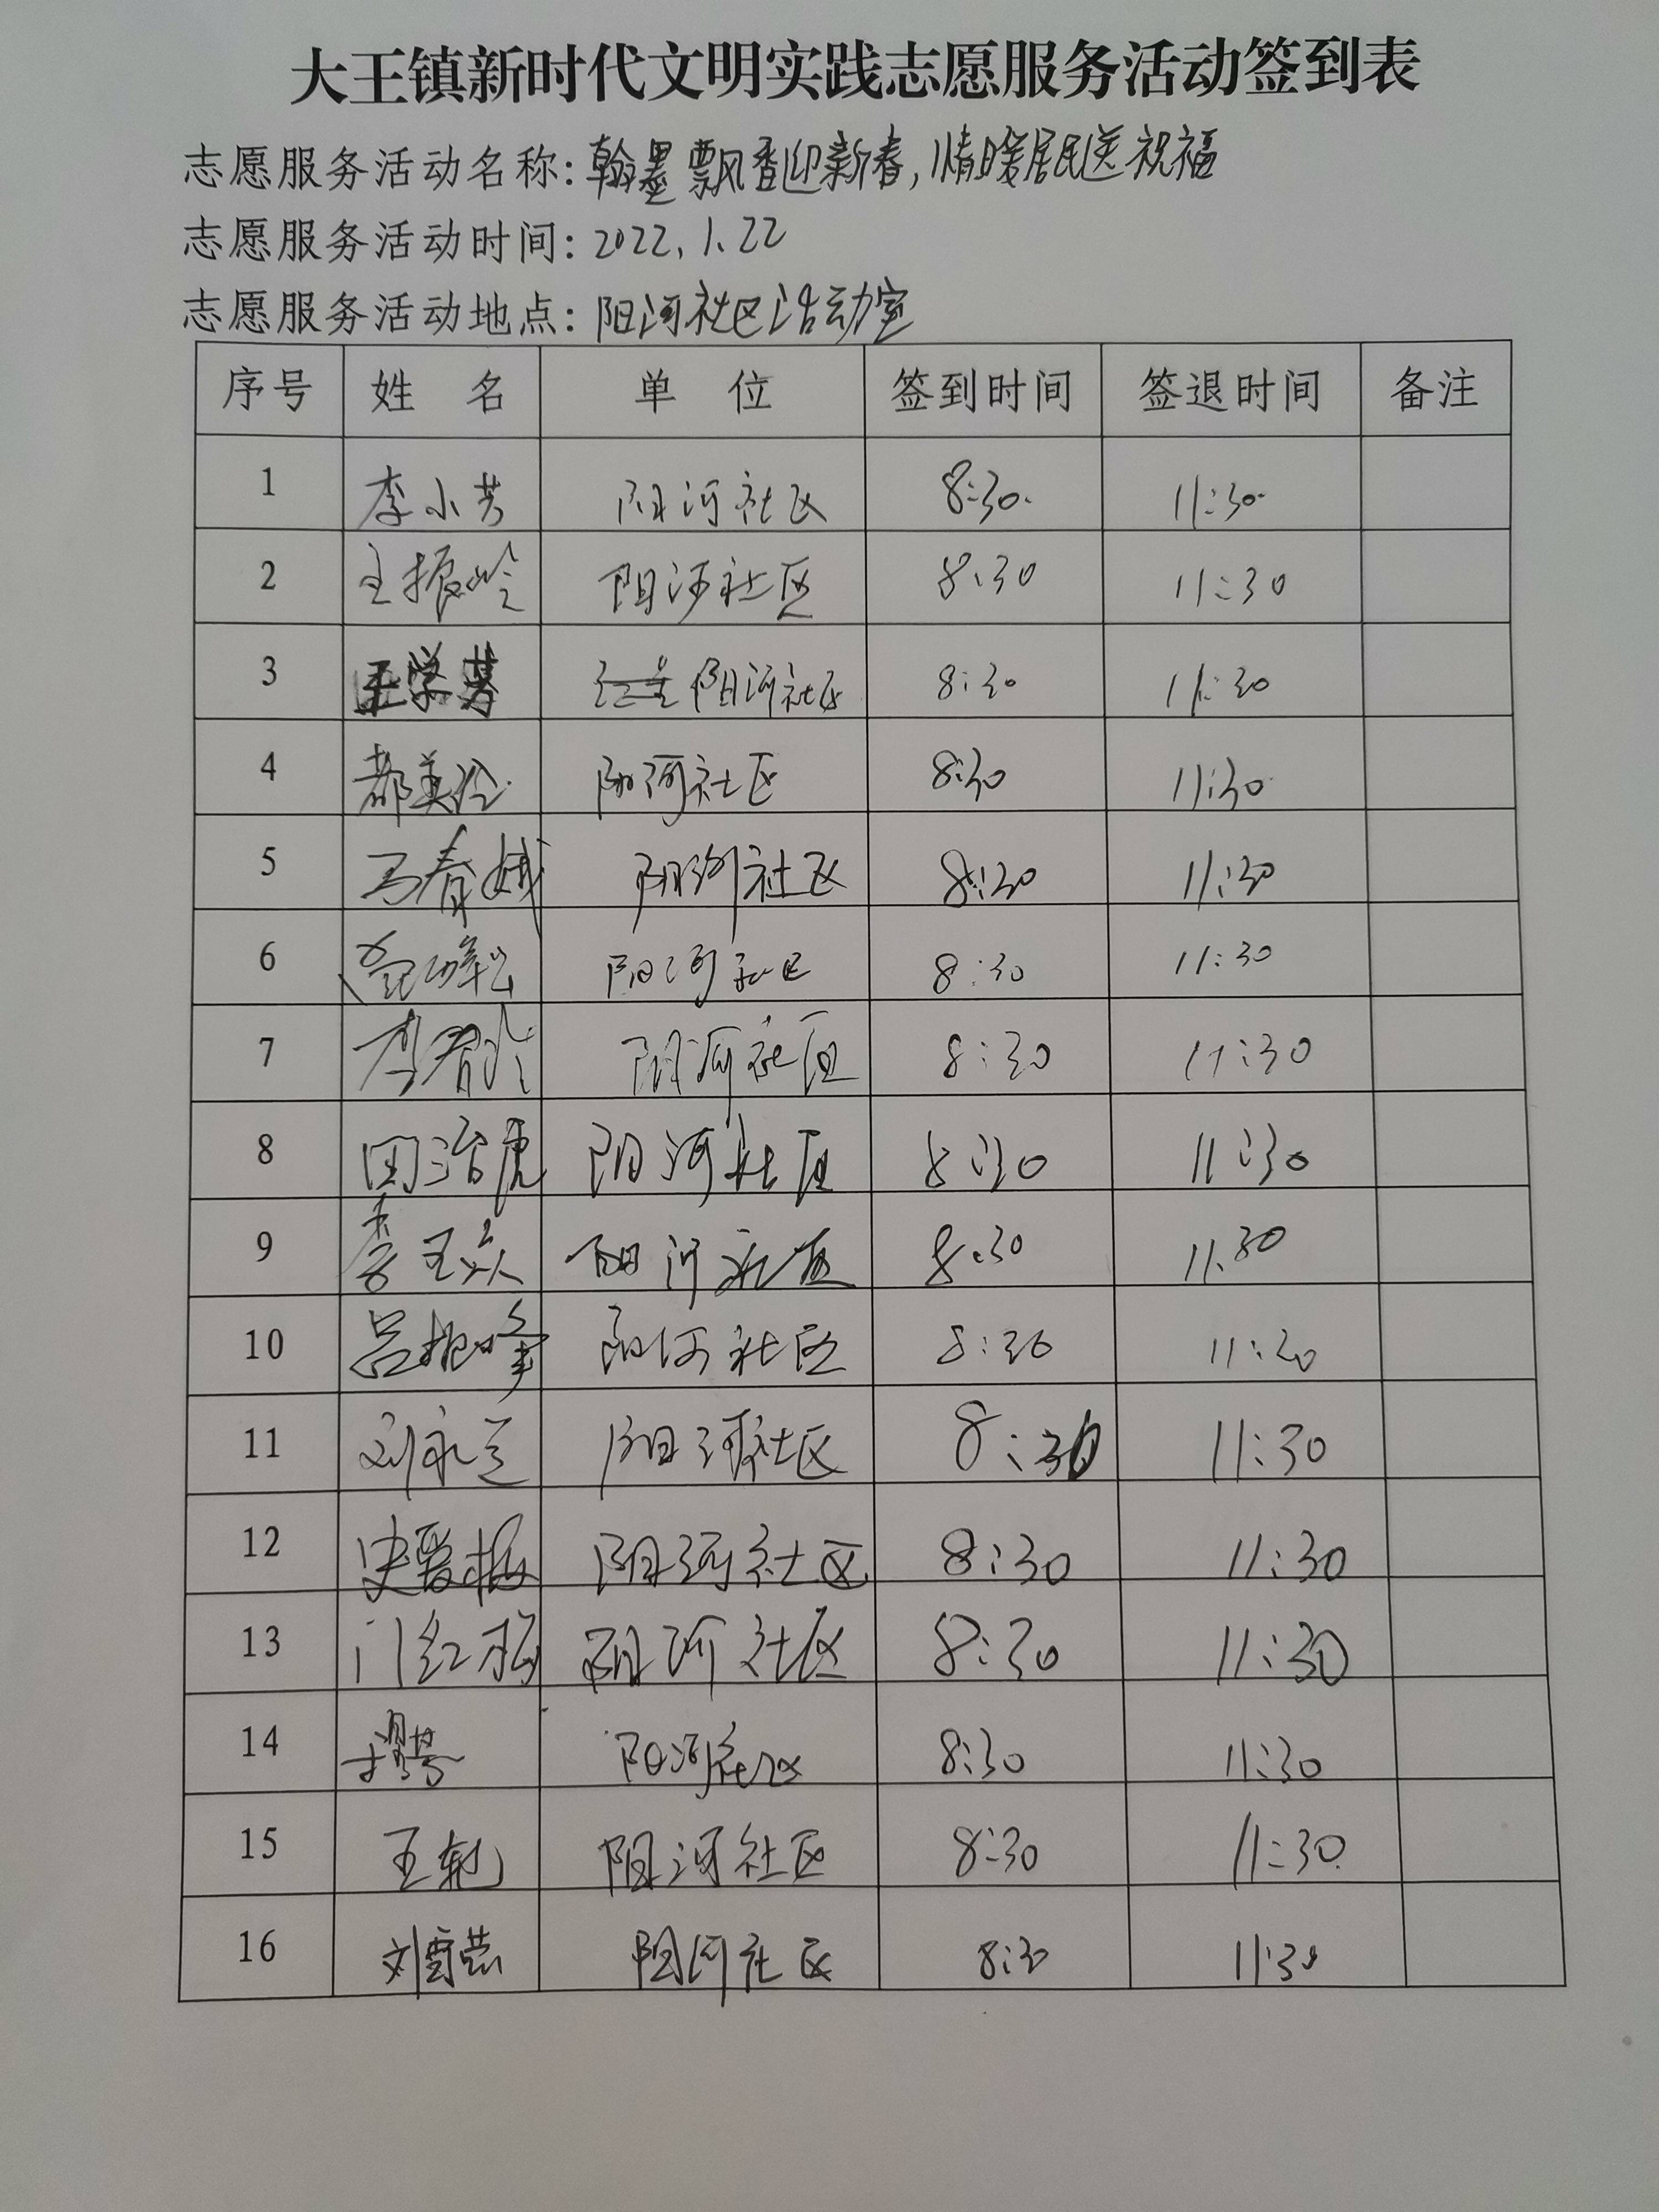 大王镇新时代文明实践志愿服务活动签到表
志愿服务活动名称:翰墨飘香迎新春,情暖居民送祝福
志愿服务活动时间:2022.1.22
志愿服务活动地点:阳河社区活动室
序号 姓 名 单 位 签到时间 签退时间 备注
1 李小芳 阳河社区 8:30 11:30
2 王振岭 阳河社区 8:30 11:30
3 王学芳 阳河社区 8:30 11:30
4 都美玲 阳河社区 8:30 11:30
5 马春娥 阳河社区 8:30 11:30
6 阳河社区 8:30 11:30
7 李君玲 阳河社区 8:30 11:30
8 田治虎 阳河社区 8:30 11:30
9 阳河社区 8:30 11:30
10 吕振峰 阳河社区 8:30 11:30
11 刘永兰 阳河社区 8:30 11:30
12 史爱梅 阳河社区 8:30 11:30
13 门红 阳河社区 8:30 11:30
14 阳河社区 8:30 11:30
15 王 阳河社区 8:30 11:30
16 刘雪燕 阳河社区 8:30 11:30